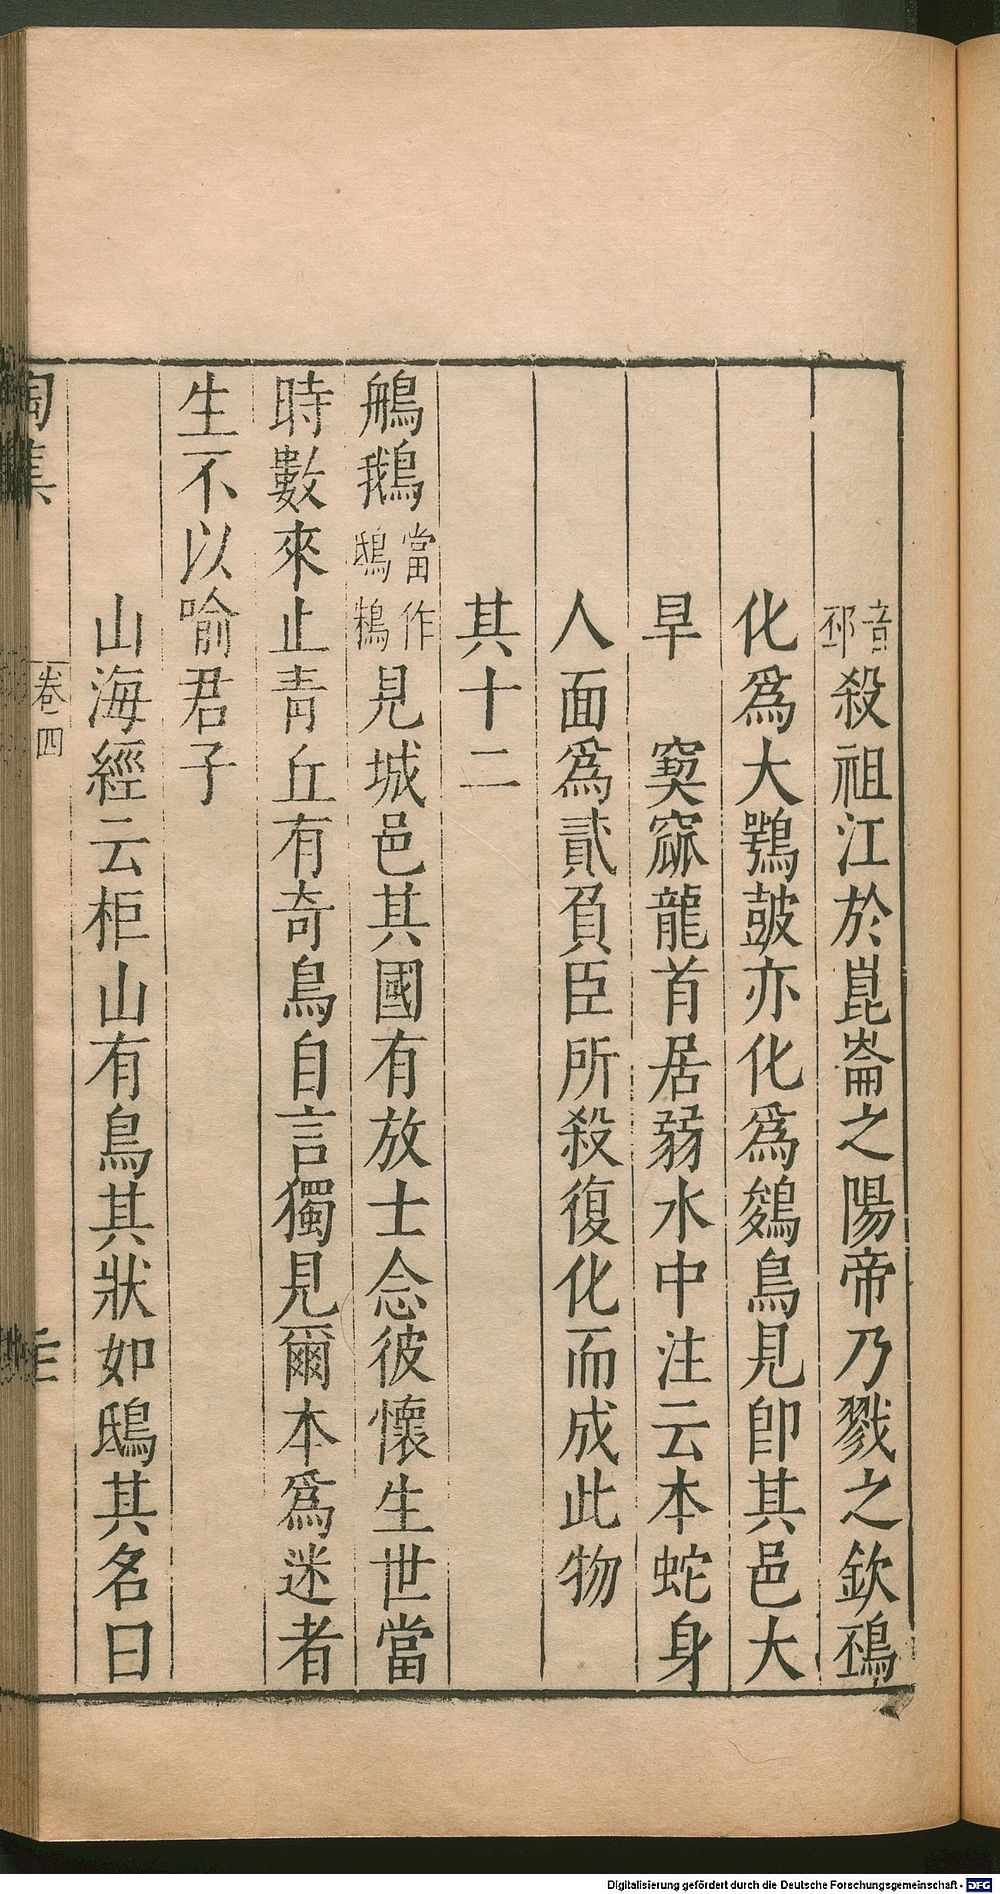 音邳殺祖江於崑崙之陽帝乃戮之欽䲹
化爲大鶚鼓亦化爲鵕鳥見卽其邑大
旱　窫窳龍首居弱水中注云本蛇身
人面爲貳負臣所殺復化而成此物
其十二
鵃鵝當作鴟鴸見城邑其國有放士念彼懷生世當
時數來止靑丘有奇鳥自言獨見爾本爲迷者
生不以喻君子
山海經云柜山有鳥其狀如鴟其名曰
陶集
卷四
Digitalisierung gefördert durch die Deutsche Forschungsgemeinschaft - DFG